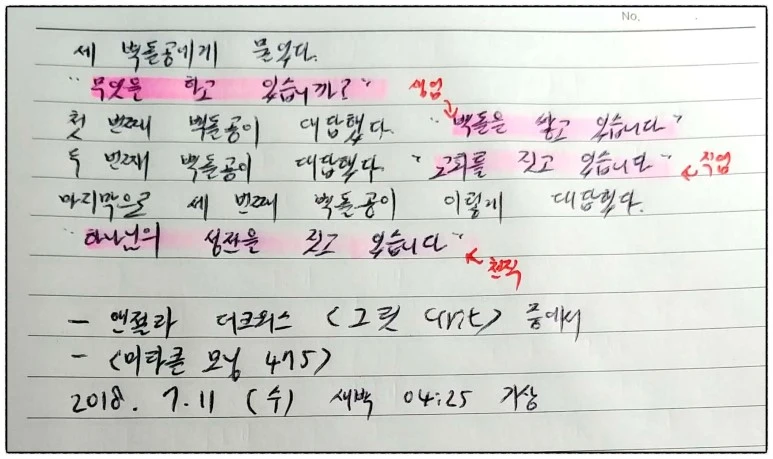 No.
세 벽돌공에게 물었다.
"무엇을 하고 있습니까?" 생업
첫 번째 벽돌공이 대답했다. "벽돌을 쌓고 있습니다"
두 번째 벽돌공이 대답했다. "교회를 짓고 있습니다" 직업
마지막으로 세 번째 벽돌공이 이렇게 대답했다.
"하나님의 성전을 짓고 있습니다" 천직
- 앤절라 더크워스 <그릿 Grit> 중에서
- <미라클 모닝 475>
2018. 7. 11 (수) 새벽 04:25 기상